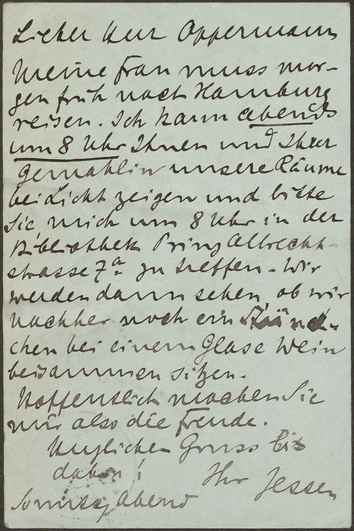 Lieber Herr Oppermann
Meine Frau muss mor-
gen früh nach Hamburg
reisen. Ich kann abends
um 8 Uhr Ihnen und Ihrer
Gemahlin unsere Räume
bei Licht zeigen und bitte
Sie, mich um 8 Uhr in der
Bibliothek Prinz Albrecht-
strasse 7a zu treffen. Wir
werden dann sehen, ob wir
nachher noch ein Stünd-
chen bei einem Glase Wein
beisammen sitzen.
Hoffentlich machen Sie
mir also die Freude.
Herzlichen Gruss bis
dahin! Ihr Jessen
Sonnabend